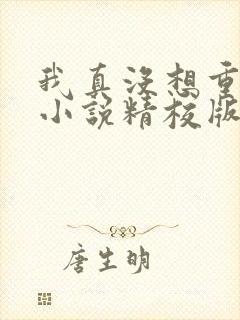 我真没想重
小说精校版
唐生明